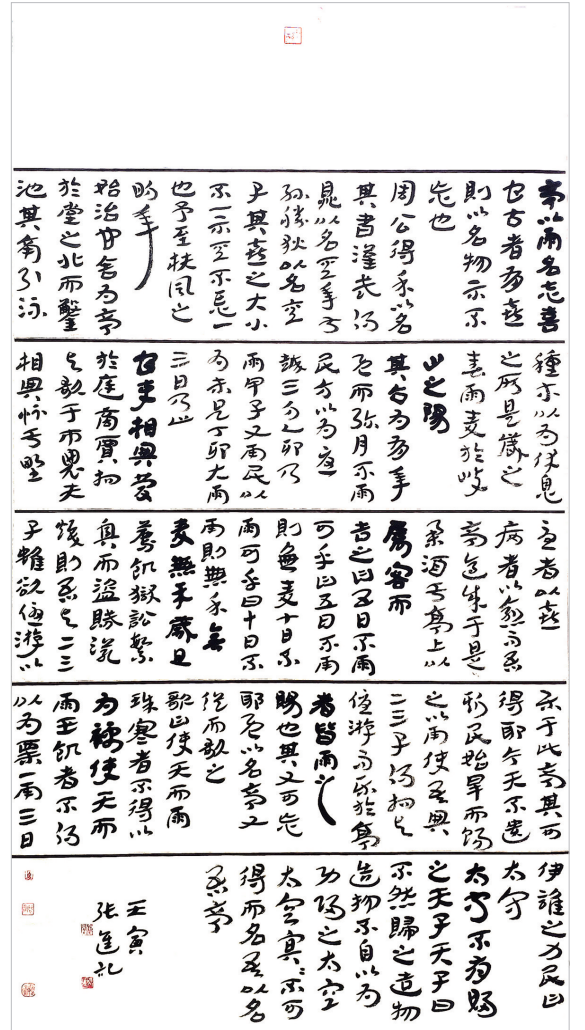 亭以雨名志喜
也古者有喜
則以名物示不
忘也
周公得禾以名
其書漢武得
鼎以名其年叔
孫勝狄以名其
子其喜之大小
不一示其不忘一
也予至扶風之
明年
始治官舍為亭
於堂之北而鑿
池其南引流
種木以為休息
之所是歲之
春雨麥於岐
山之陽
其占為有年
既而弥月不雨
民方以為憂
越三月乙卯乃
雨甲子又雨民以
為未足丁卯大雨
三日乃止
官吏相與慶
於庭商賈相
與歌于市農夫
相與忭于野
憂者以喜
病者以愈而吾
亭適成于是
舉酒于亭上以
屬客而
告之曰五日不雨
可乎曰五日不雨
則無麥十日不
雨可乎曰十日不
雨則無禾無
麥無禾歲且
薦飢獄訟繁
興而盜賊滋
熾則吾與二三
子雖欲優游以
樂于此亭其可
得耶今天不遺
斯民始旱而賜
之以雨使吾與
二三子得相與
優游而樂於亭
者皆雨之
賜也其又可忘
耶既以名亭又
從而歌之
歌曰使天而雨
珠寒者不得以
為襦使天而
雨玉飢者不得
以為粟一雨三日
伊誰之力民曰
太守
太守不有歸
之天子天子曰
不然歸之造物
造物不自以為
功歸之太空
太空冥冥不可
得而名吾以名
吾亭
壬寅
张進记